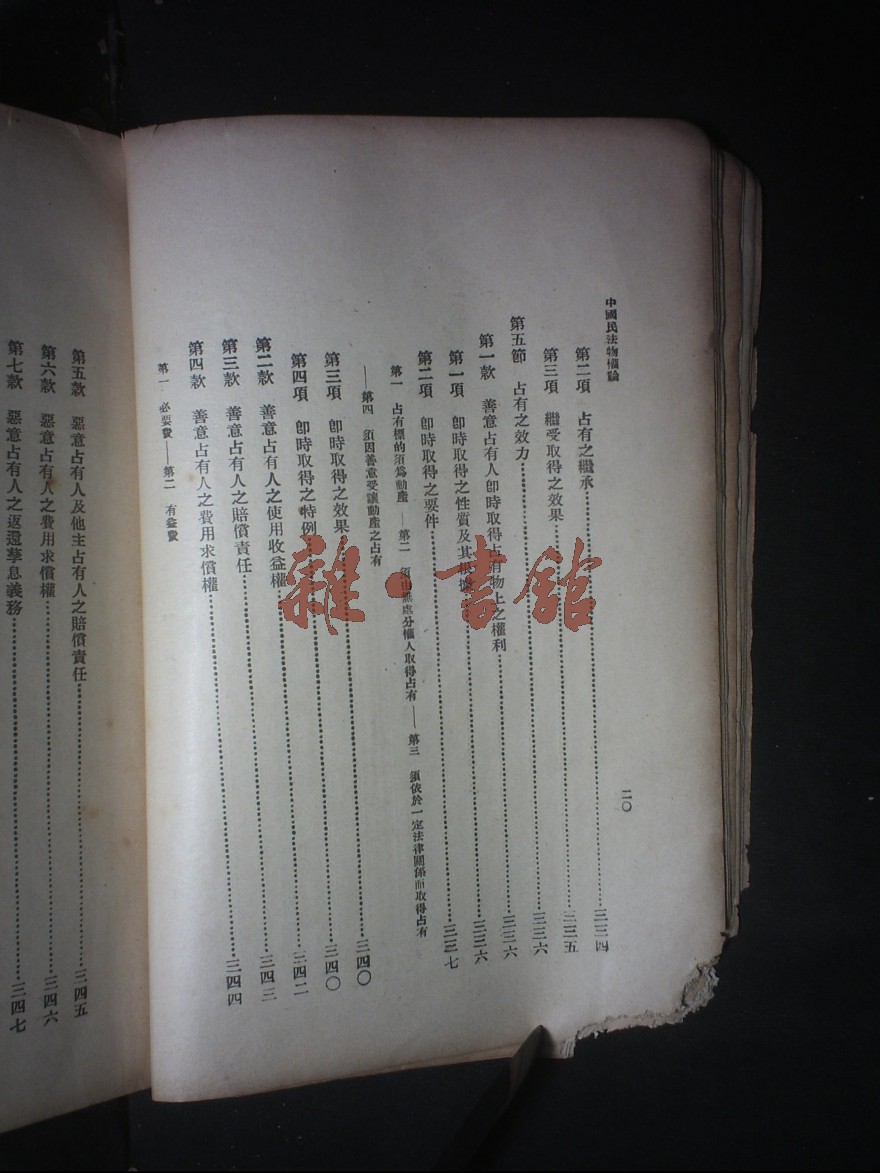 中國民法物權論
二〇
第二項 占有之繼承……三三四
第三項 繼受取得之效果……三三五
第五節 占有之效力……三三六
第一款 善意占有人卽時取得占有物上之權利……三三六
第一項 卽時取得之性質及其根據……三三六
第二項 卽時取得之要件……三三七
第一 占有標的須爲動產——第二 須由無處分權人取得占有——第三 須依於一定法律關係而取得占有
——第四 須因善意受讓動產之占有
第三項 卽時取得之效果……三四〇
第四項 卽時取得之特例……三四〇
第二款 善意占有人之使用收益權……三四二
第三款 善意占有人之賠償責任……三四三
第四款 善意占有人之費用求償權……三四四
第一 必要費——第二 有益費
第五款 惡意占有人及他主占有人之賠償責任……三四五
第六款 惡意占有人之費用求償權……三四六
第七款 惡意占有人之返還孳息義務……三四七
雜·書館